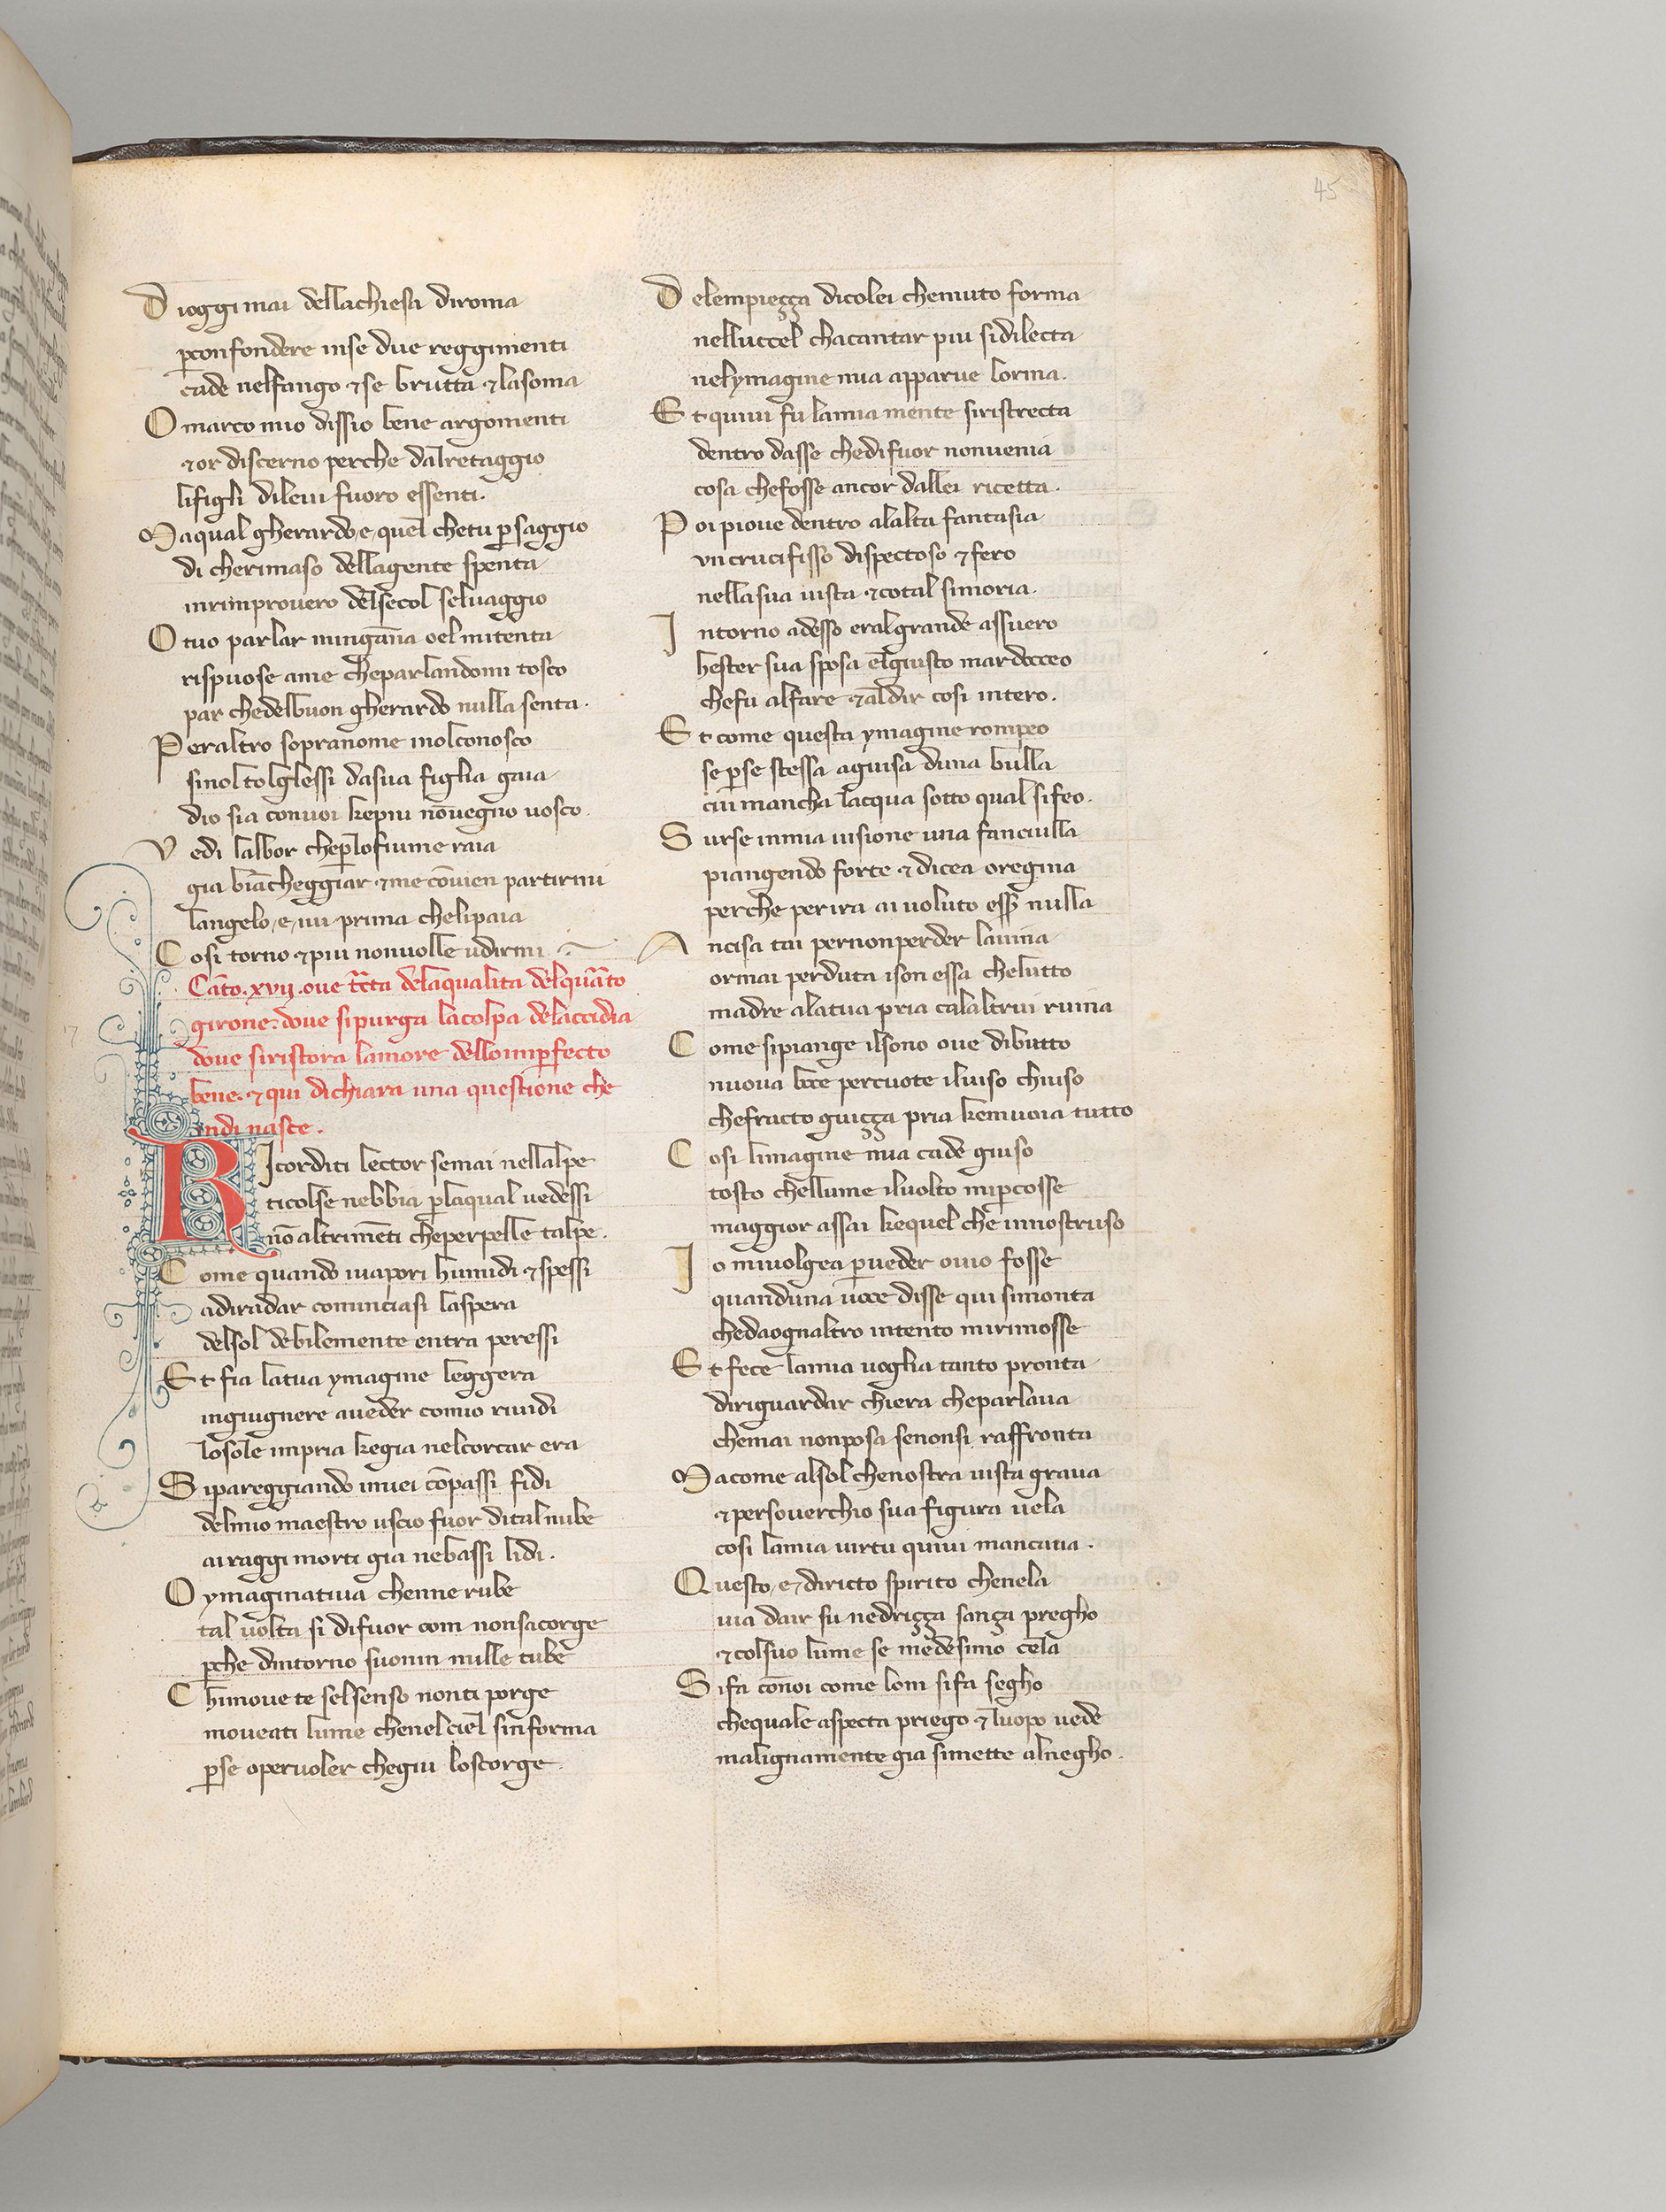 45
Dioggi mai dellachiesa diroma
ꝑconfondere inse due reggimenti
cade nelfango ⁊ se brutta ⁊ lasoma
O marco mio dissio bene argomenti
⁊or discerno perche dalretaggio
lifigli dileui fuoro essenti.
Maqual gherardo, e, quel chetu ꝑsaggio
di cherimaso dellagente spenta
inrimprouero delsecol seluaggio
O tuo parlar mingāna oel mitenta
rispuose ame cheparlandomi tosco
par chedelbuon gherardo nulla senta.
Peraltro sopranome inolconosco
sinol tolglessi dasua figlia gaia
dio sia conuoi kepiu nōuegno uosco.
Vedi lalbor cheꝑlofiume raia
gia biācheggiar ⁊me cōuien partirmi
langelo, e, iui prima chelipaia
Cosi torno ⁊piu nonuolle udirmi.
Cāto. xvij. oue tr̄cta delaqualita delquārto
girone: doue sipurga lacolpa delaccidia
doue siristora lamore delloimꝑfecto
bene. ⁊ qui dichiara una questione che
indi nasce.
RIcorditi lector semai nellalpe
ticolse nebbia ꝑlaqual uedessi
nō altrimēti cheperpelle talpe.
Come quando iuapori humidi ⁊ spessi
adiradar cominciasi laspera
delsol debilemente entra peressi
Et fia latua ymagine leggera
ingiugnere aueder comio riuidi
losole impria kegia nelcorcar era
Sipareggiando imiei cōpassi fidi
delmio maestro uscio fuor dital nube
airaggi morti gia nebassi lidi.
O ymaginatiua chenne rube
tal uolta si difuor com nonsacorge
ꝑche dintorno suonin mille tube
Chimoue te selsenso nonti porge
moueati lume chenel ciel sinforma
ꝑse operuoler chegiu loscorge.
Delempiezza dicolei chemuto forma
nelluccel chacantar piu sidilecta
nelymagine mia apparue lorma.
Et quiui fu lamia mente siristrecta
dentro dasse chedifuor nonuenia
cosa chefosse ancor dallei ricetta.
Poi pioue dentro alalta fantasia
vn crucifisso dispectoso ⁊ fero
nellasua uista ⁊cotal simoria.
Intorno adesso eralgrande assuero
hester sua sposa elgiusto mardoceo
chefu alfare ⁊aldir cosi intero.
Et come questa ymagine rompeo
se ꝑse stessa aguisa duna bulla
cui mancha lacqua sotto qual sifeo.
Surse inmia uisione una fanciulla
piangendo forte ⁊ dicea oregina
perche perira ai uoluto esser nulla
Ancisa tai pernonperder lauina
ormai perduta ison essa chelutto
madre alatua pria calaltrui ruina
Come sipiange ilsono oue dibutto
nuoua luce percuote iluiso chiuso
chefracto guizza pria kemuoia tutto
Cosi limagine mia cade giuso
tosto chellume iluolto miꝑcosse
maggior assai kequel che innostruso
Io miuolgea ꝑueder ouio fosse
quanduna uoce disse qui simonta
chedaognaltro intento mirimosse
Et fece lamia uoglia tanto pronta
diriguardar chiera cheparlaua
chemai nonposa senonsi raffronta
Macome alsol chenostra uista graua
⁊ persouerchio sua figura uela
cosi lamia uirtu quiui mancaua.
Questo, e, diricto spirito chenela
uia dair su nedrizza sanza pregho
⁊colsuo lume se medesimo cela
Sifa cōnoi come lom sifa segho
chequale aspecta priego ⁊luopo uede
malignamente gia simette alnegho.